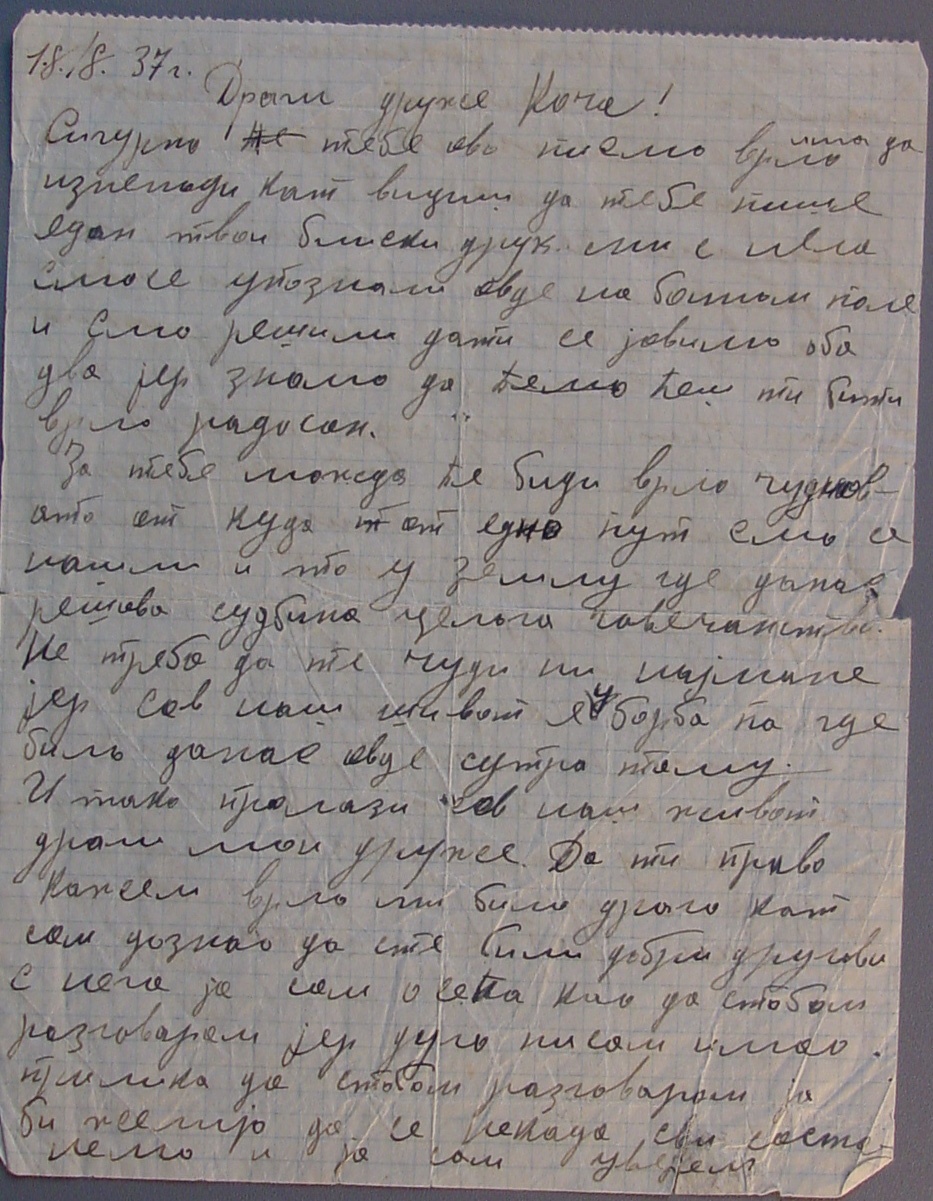 18./8. 37 г.
Драги друже Коча!
Сигурно не тебе ово писмо врло има да
изненади кат видиш да тебе пише
едан твои блиски друк. ми с нега
смосе упознали овде на бойном поле
и смо решили дати се јавимо оба
два јер знамо да ћемо ћеш ти бити
врло радосан.
За тебе можда ће биди врло чуднов-
ато от куда т от едно пут смо се
нашли и то у землу где данас
решава судбина целога човечанства.
Не треба да те чуди ни најмане
јер сав наш живот е у борба па где
било данас овде сутра тамо.
И тако пролази сав наш живот
драги мои друже. Да ти право
кажем врло ми било драго кат
сам дознао да сте били добри другови
с нега ја сам осећа као да стобом
разговарам јер дуго нисам имао
прилика да стобом разговарам ја
би желијо да се некада сви саста-
немо и ја сам уверен